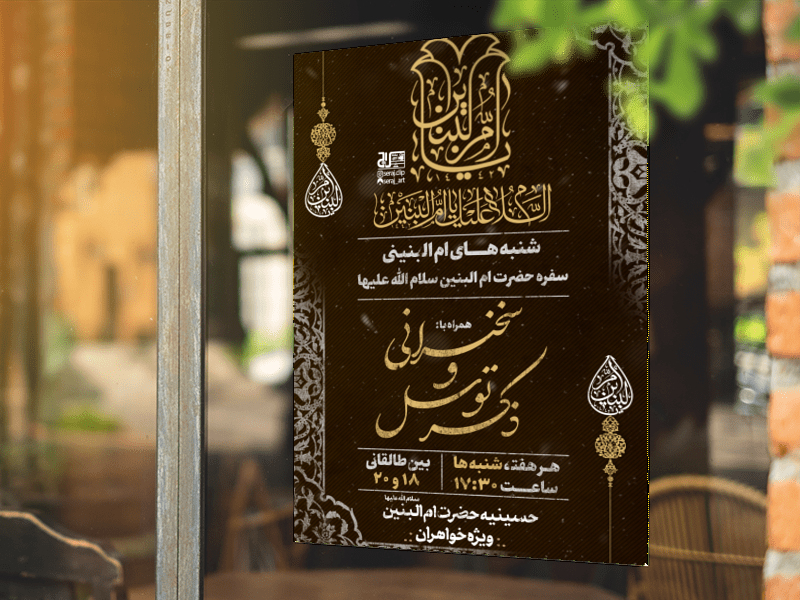 یا ام البنین
سراج
@seraj.clip
seraj_art
السلام علیک یا ام البنین
شنبه های ام البنینی
سفره حضرت ام البنین سلام الله علیها
همراه با:
سخنرانی
و
ذکر توسل
هر هفته، شنبه‌ها
ساعت ۱۷:۳۰
بین طالقانی
۱۸ و ۲۰
سلام الله علیها
حسینیه حضرت ام البنین
ویژه خواهران
ام البنین
ام البنین